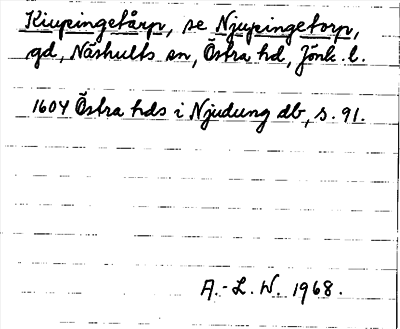 Kiupingetårp, se Njupingetorp,
gd, Näshults sn, Östra hd, Jönk. l.
1604 Östra hds i Njudung db, s. 91.
A.-L. W. 1968.